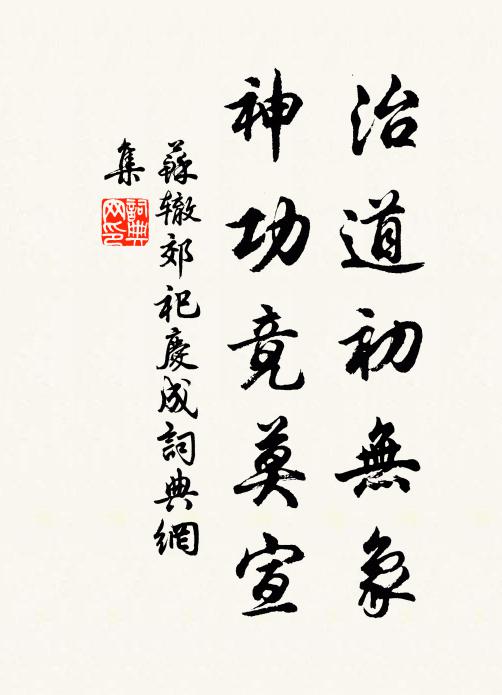 治道初無象
神功竟莫宣
蘇辙郊祀慶成詞典網
集
詞典
网印